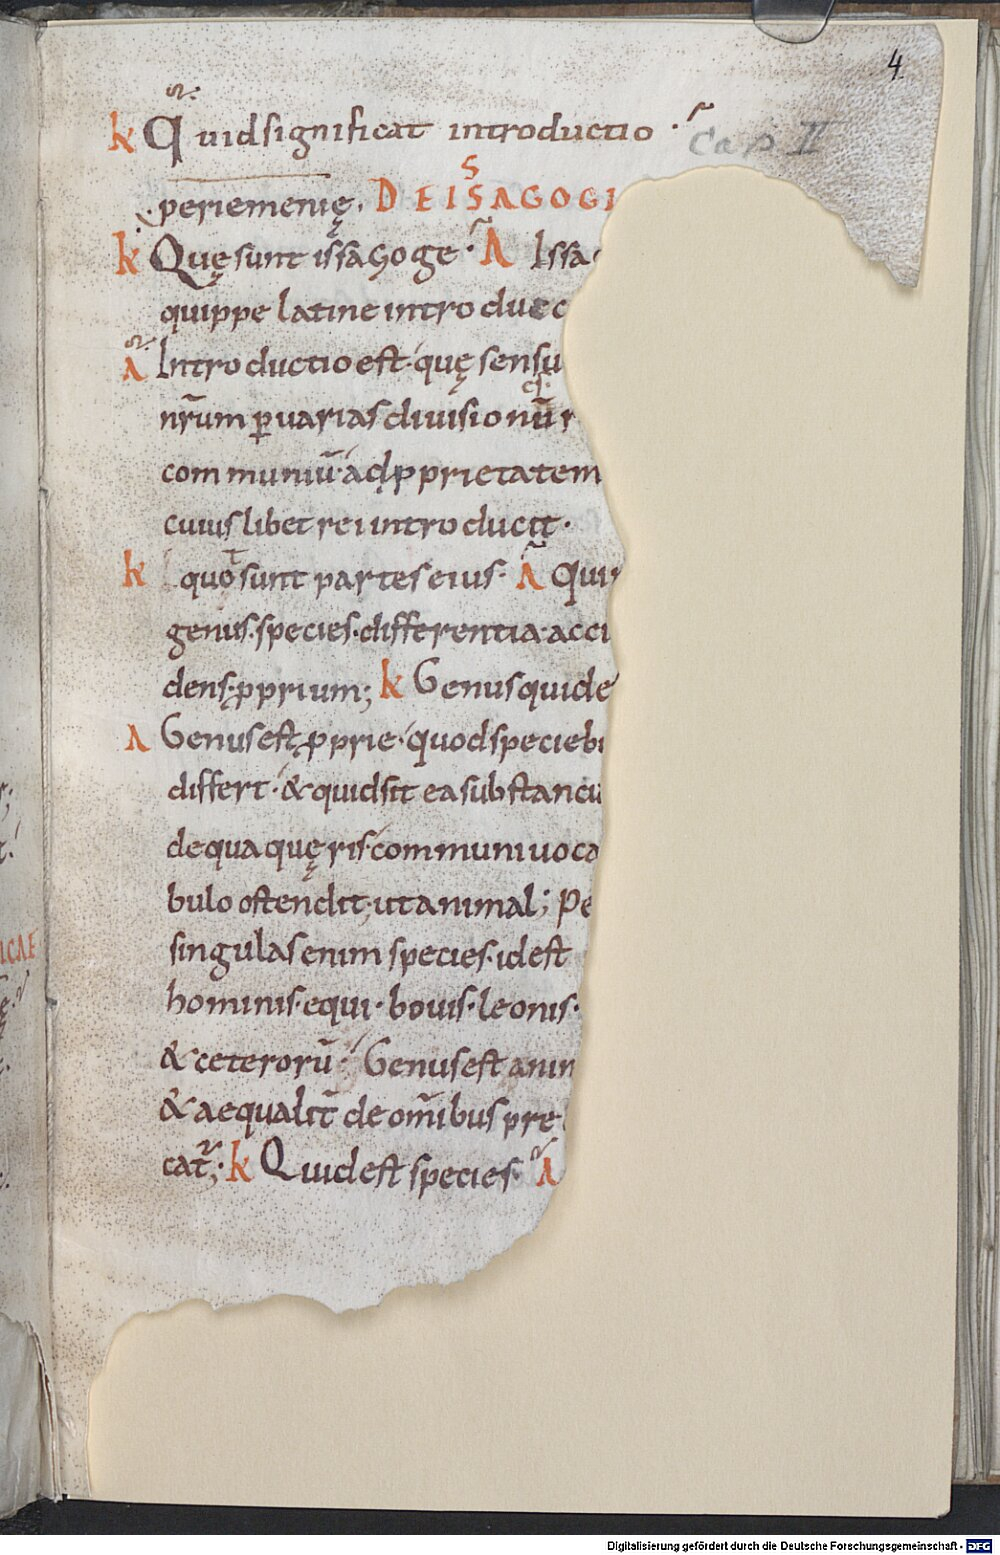 4
k Quid significat introductio ·
Cap II
periemenię. DE ISAGOGI
k Quę sunt issagoge · A Issa
quippe latine introduc
A Introductio est · quę sensu
nr̄um ꝑ uarias diuisionū r
communiū · ad ꝓprietatem
cuiuslibet rei introducit ·
k quot sunt partes eius · A Quin
genus · species · differentia · acci
dens · ꝓprium; k Genus quide
A Genus est ꝓprie · quod speciebu
differt · & quid sit ea substancia
de qua quęris communi uoca
bulo ostendit · ut animal; Pe
singulas enim species · id est
hominis · equi · bouis · leonis ·
& ceterorū · Genus est anim
& aequalit̄ de om̄ibus pre
cat̄; k Quid est species · A
ICAE
Digitalisierung gefördert durch die Deutsche Forschungsgemeinschaft - DFG